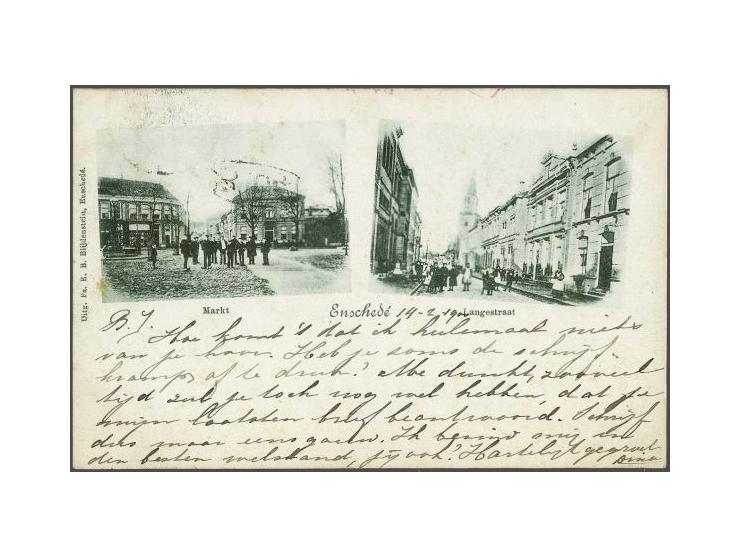 Uitg. Fa. R. B. Blijdenstein, Enschedé.
Markt
Enschedé 14-2-19
Langestraat
B. J. Hoe komt 't dat ik heelemaal niets
van je hoor. Heb je soms de schrijf
kramp, of te druk? Me dunkt, zooveel
tijd zul je toch nog wel hebben, dat je
mijn laatsten brief beantwoord. Schrijf
dus maar eens gauw. Ik bevind mij in
den besten welstand, jij ook? Hartelijk gegroet
Dina